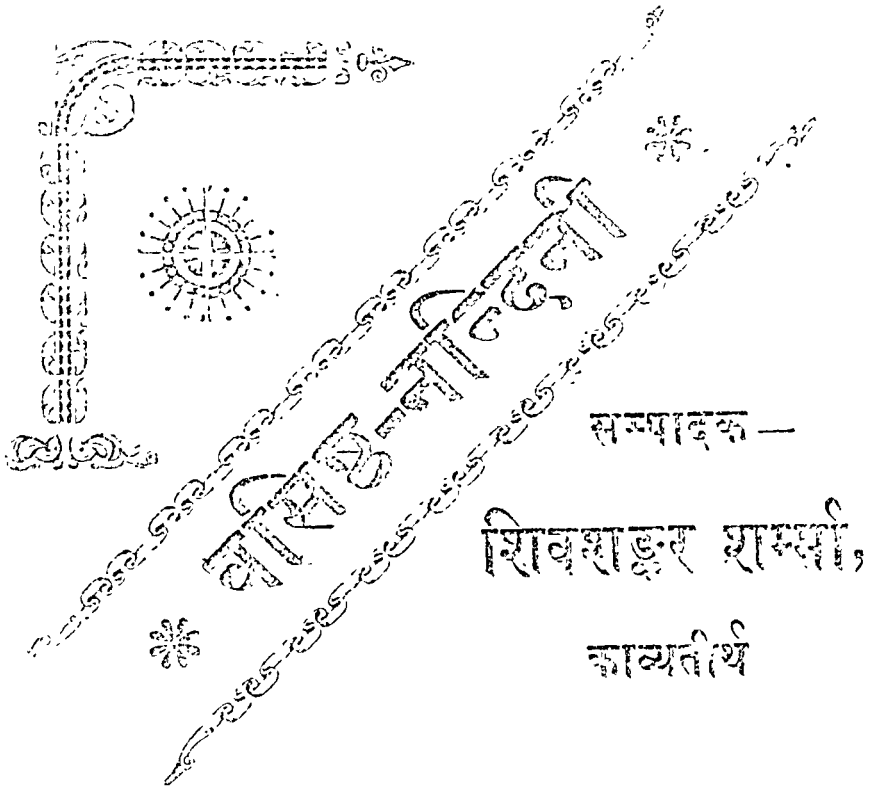 वसिष्ठ-नन्दिनी
सम्पादक—
शिवशङ्कर शर्म्मा,
काव्यतीर्थ